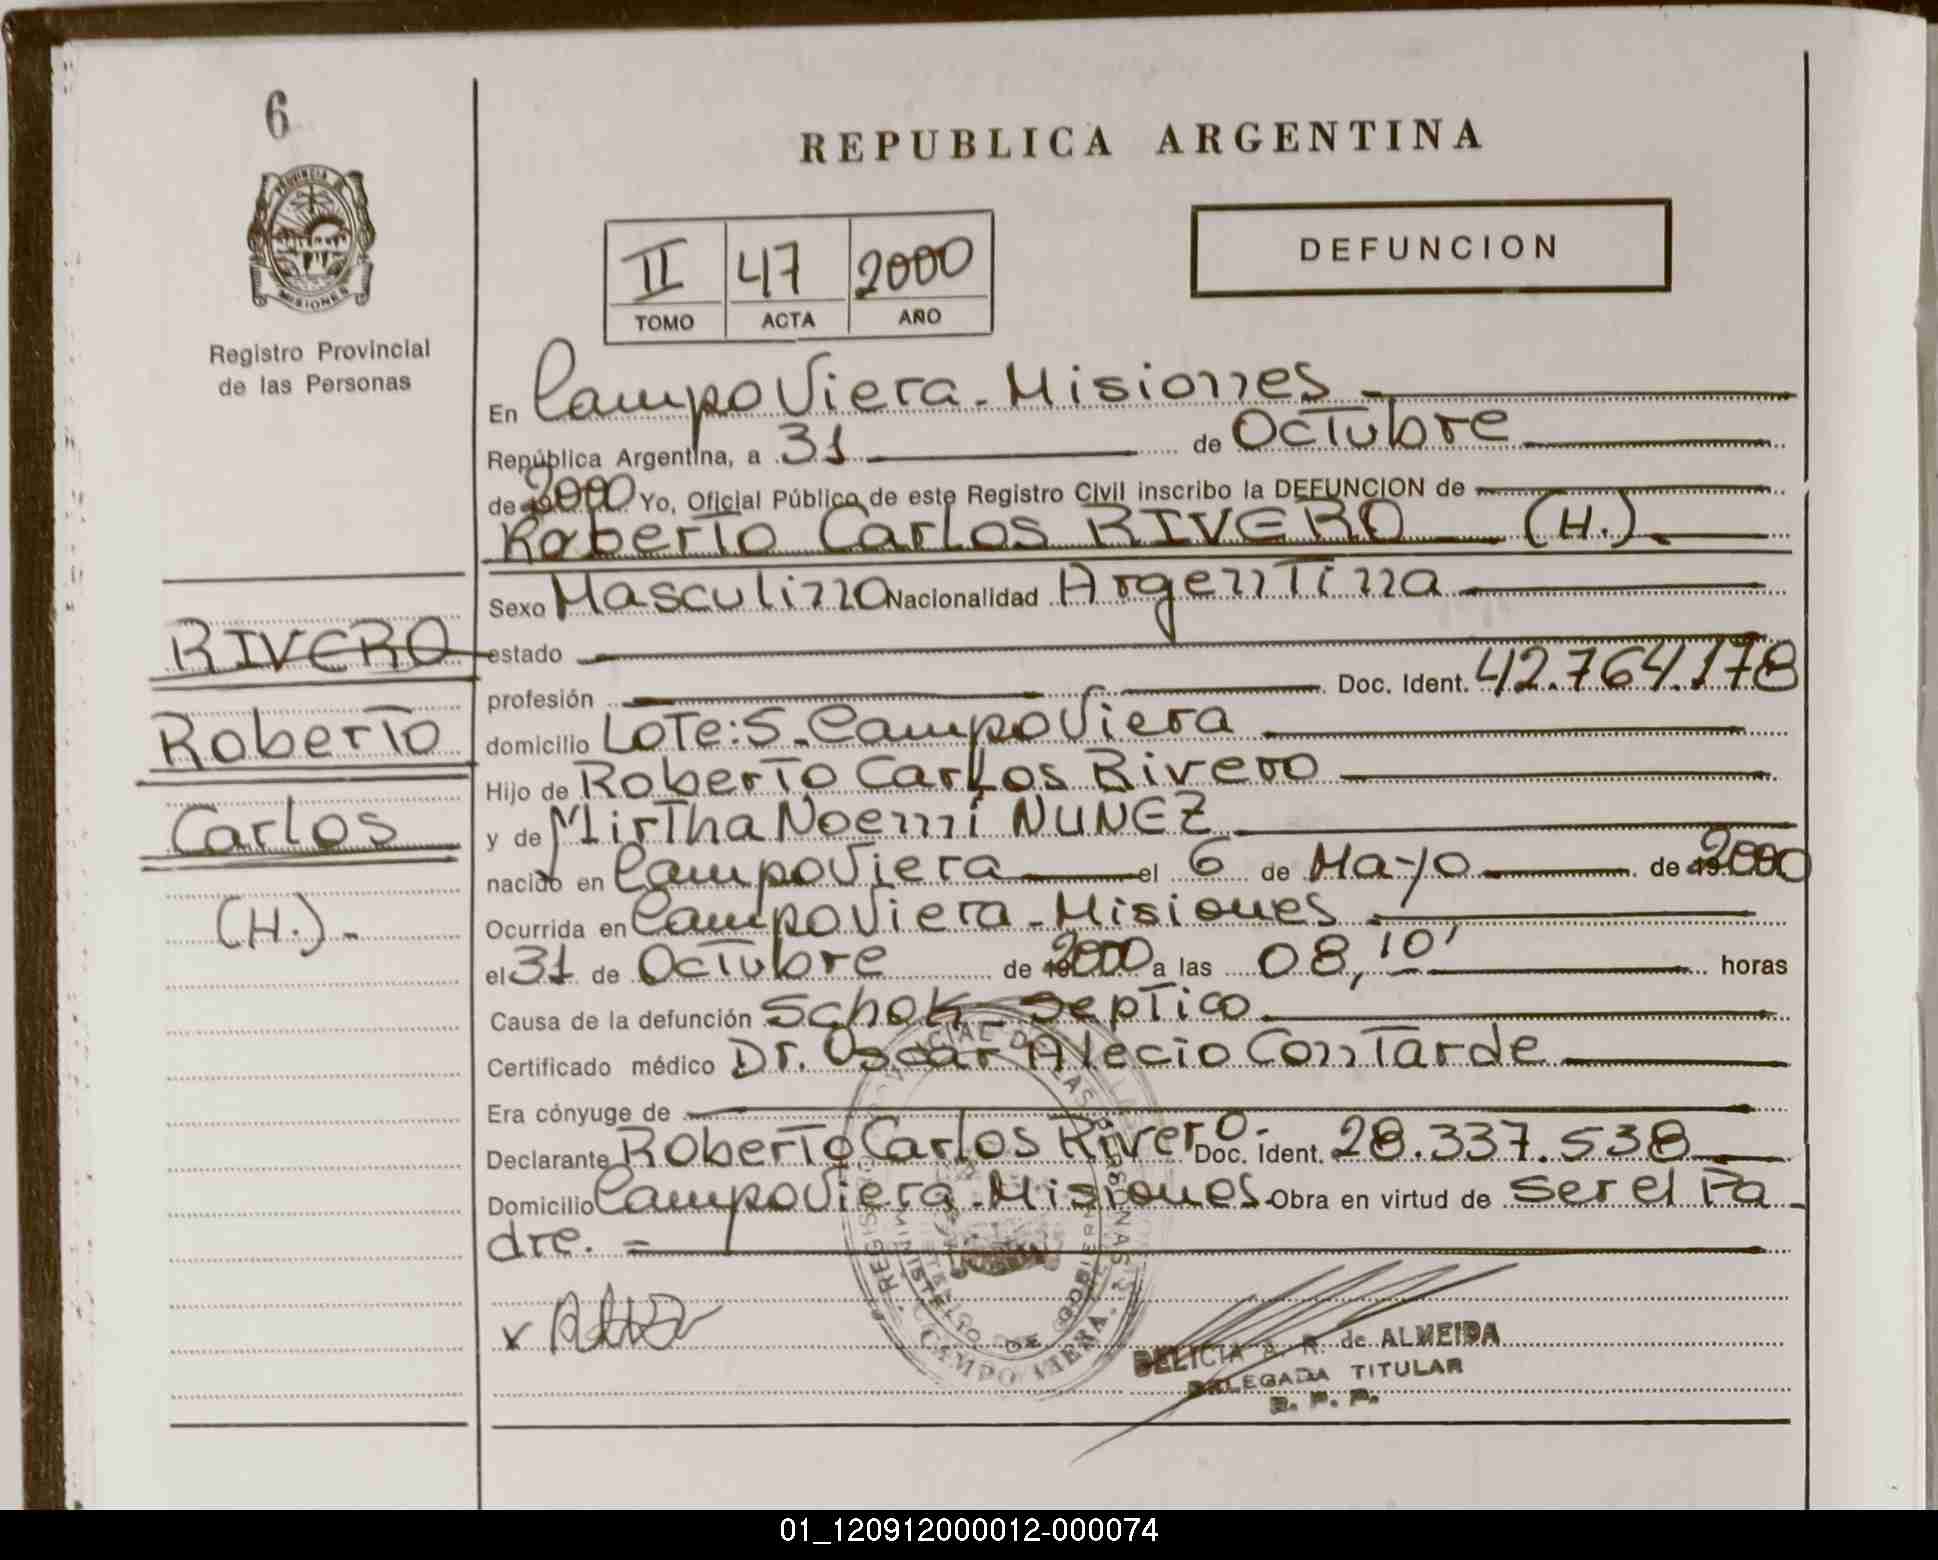 6
PROVINCIA DE
MISIONES
Registro Provincial
de las Personas
RIVERO
Roberto
Carlos
(H.).-
REPUBLICA ARGENTINA
II 47 2000
TOMO ACTA AÑO
DEFUNCION
En Campo Viera - Misiones
República Argentina, a 31 de Octubre
de 2000 Yo, Oficial Público de este Registro Civil inscribo la DEFUNCION de
Roberto Carlos RIVERO (H.).
Sexo Masculino Nacionalidad Argentina
estado
profesión Doc. Ident. 42.764.178
domicilio Lote: 5 - Campo Viera
Hijo de Roberto Carlos Rivero
y de Mirtha Noemi NUNEZ
nacido en Campo Viera el 6 de Mayo de 2000
Ocurrida en Campo Viera - Misiones
el 31 de Octubre de 2000 a las 08,10' horas
Causa de la defunción Schok - Septico
Certificado médico Dr. Oscar Alecio Contarde
Era cónyuge de
Declarante Roberto Carlos Rivero.- Doc. Ident. 28.337.538
Domicilio Campo Viera - Misiones - Obra en virtud de ser el Pa-
dre. =
CAMPO VIERA
DELICIA A. R. de ALMEIDA
DELEGADA TITULAR
R. P. P.
01_120912000012-000074